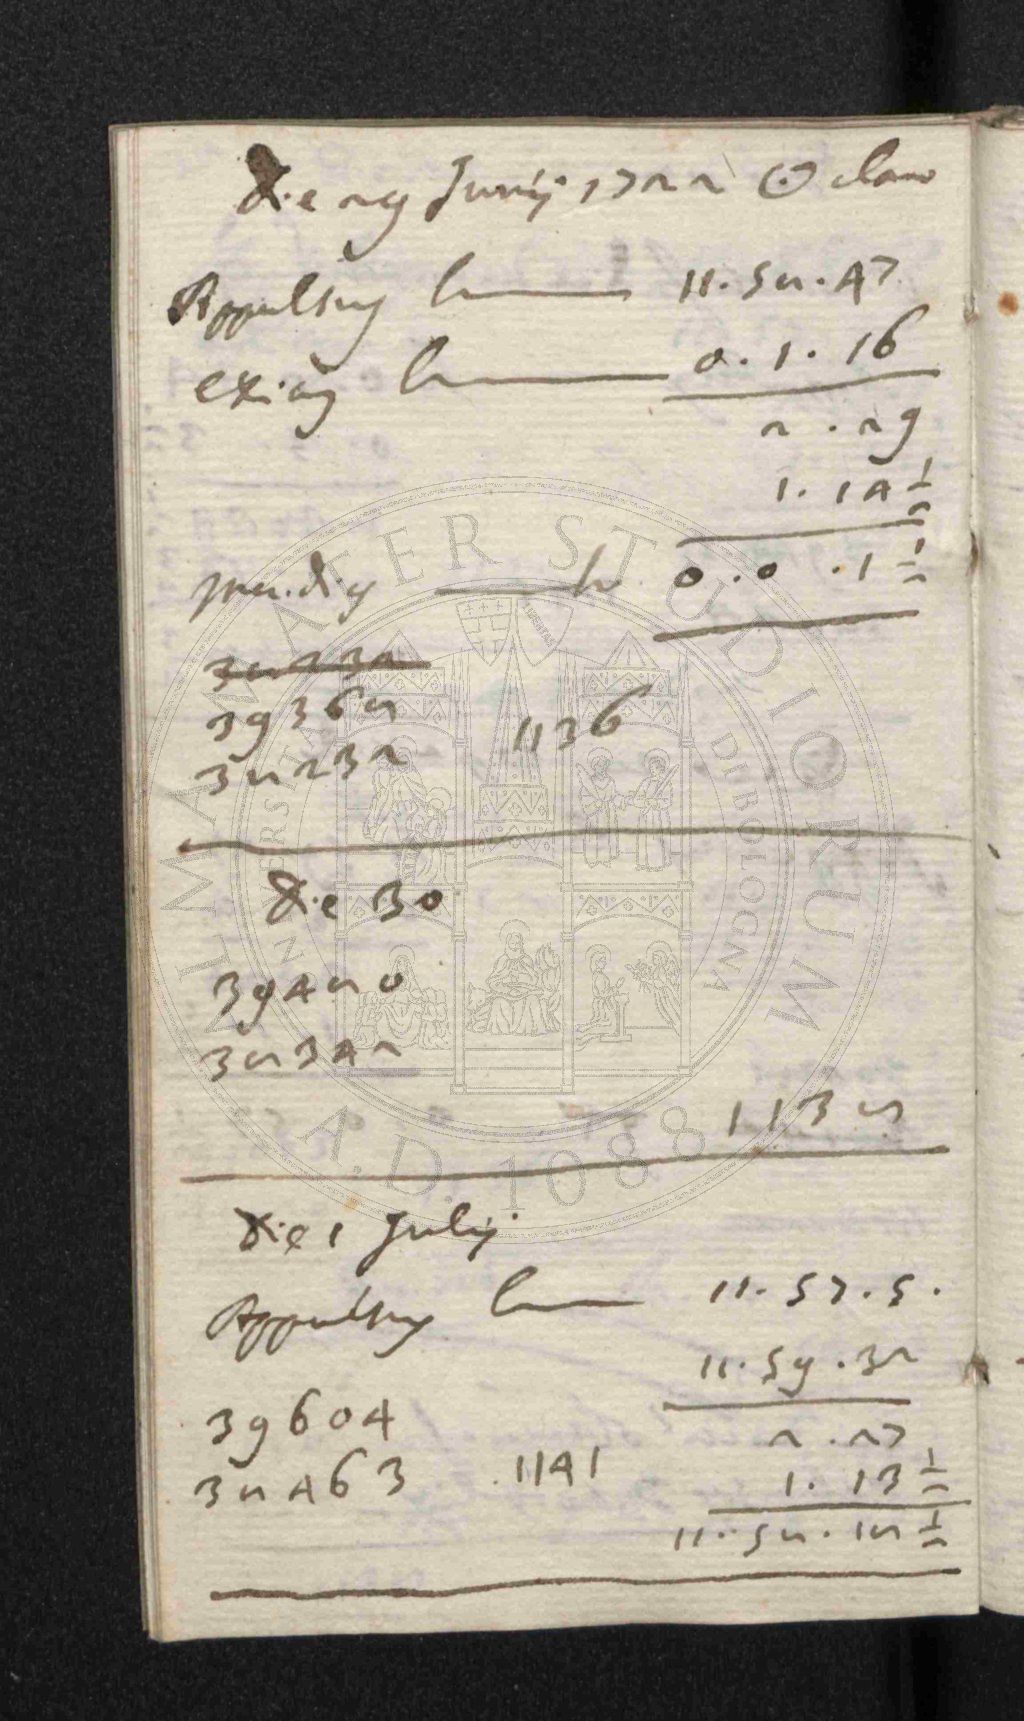 Die 29 Junij 1722 ☉ claro
Appulsus h 11. 58. 47
exitus h 0. 1. 16
2. 29
1. 14 1/2
meridies h 0. 0. 1 1/2
38232
39368 1136
38232
Die 30
39480
38342
1138
Die 1 Julij
Appulsus h 11. 57. 5.
11. 59. 32
39604 2. 27
38463 1141 1. 13 1/2
11. 58. 18 1/2
ALMA MATER STUDIORUM
A.D. 1088
UNIVERSITÀ DI BOLOGNA
LIBERTAS